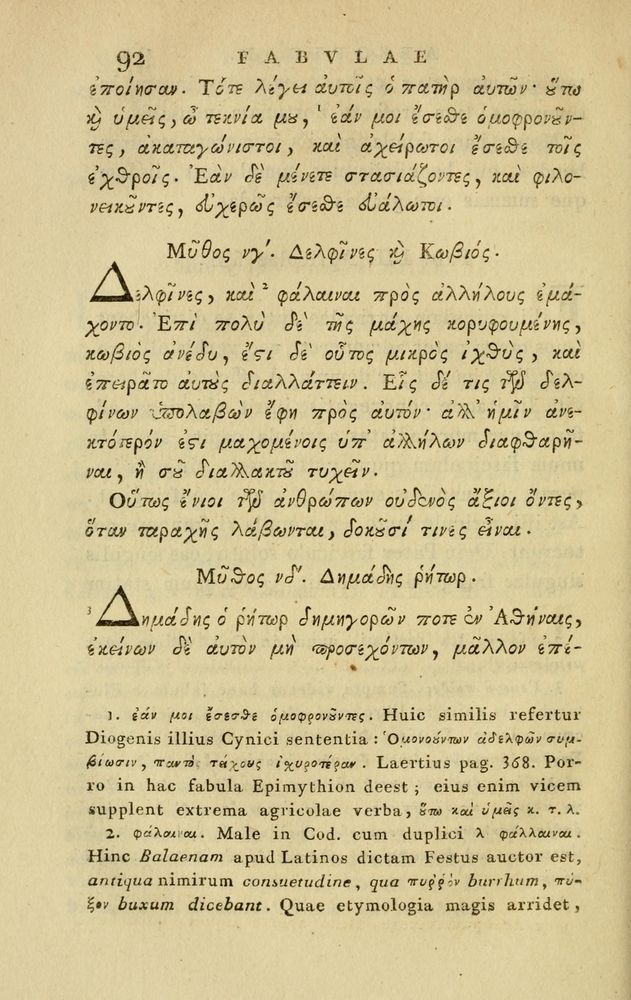 92 FABVLAE
ἐποίησαν. Τότε λέγει αὐτοῖς ὁ πατὴρ αὐτῶν· ὅτω
καὶ ὑμεῖς, ὦ τεκνία μου, ¹ ἐάν μοι ἔσεσθε ὁμοφρονοῦν-
τες, ἀκαταγώνιστοι, καὶ ἀχείρωτοι ἔσεσθε τοῖς
ἐχθροῖς. Ἐὰν δὲ μένετε στασιάζοντες, καὶ φιλο-
νεικοῦντες, εὐχερῶς ἔσεσθε εὐάλωτοι.
Μῦθος νγ'. Δελφῖνες καὶ Κωβιός.
Δελφῖνες, καὶ ² φάλαιναι πρὸς ἀλλήλους ἐμά-
χοντο. Ἐπὶ πολὺ δὲ τῆς μάχης κορυφουμένης,
κωβιὸς ἀνέδυ, ἔστι δὲ οὗτος μικρὸς ἰχθὺς, καὶ
ἐπειρᾶτο αὐτοὺς διαλλάττειν. Εἷς δέ τις τῶν δελ-
φίνων ὑπολαβὼν ἔφη πρὸς αὐτόν· ἀλλ' ἡμῖν ἀνε-
κτότερόν ἐστι μαχομένοις ὑπ' ἀλλήλων διαφθαρῆ-
ναι, ἢ σοῦ διαλλακτοῦ τυχεῖν.
Οὕτως ἔνιοι τῶν ἀνθρώπων οὐδενὸς ἄξιοι ὄντες,
ὅταν ταραχῆς λάβωνται, δοκοῦσί τινες εἶναι.
Μῦθος νδ'. Δημάδης ῥήτωρ.
³ Δημάδης ὁ ῥήτωρ δημηγορῶν ποτε ἐν Ἀθήναις,
ἐκείνων δὲ αὐτὸν μὴ προσεχόντων, μᾶλλον ἐπέ-
1. ἐάν μοι ἔσεσθε ὁμοφρονοῦντες. Huic similis refertur
Diogenis illius Cynici sententia : Ὁμονούντων ἀδελφῶν συμ-
βίωσιν, παντὸς τείχους ἰχυροτέραν. Laertius pag. 368. Por-
ro in hac fabula Epimythion deest ; eius enim vicem
supplent extrema agricolae verba, οὕτω καὶ ὑμεῖς κ. τ. λ.
2. φάλαιναι. Male in Cod. cum duplici λ φάλλαιναι.
Hinc Balaenam apud Latinos dictam Festus auctor est,
antiqua nimirum consuetudine, qua πυῤῥὸν burrhum, πύ-
ξον buxum dicebant. Quae etymologia magis arridet,